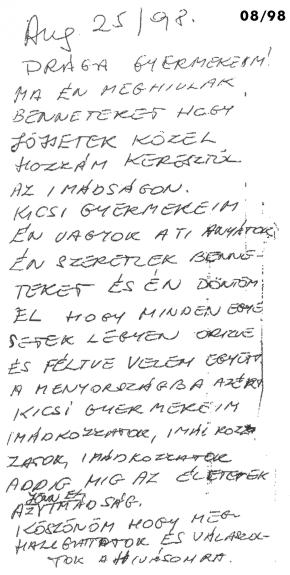 08/98
Aug 25/98.
DRÁGA GYERMEKEIM!
MA ÉN MEGHIVLAK
BENNETEKET HOGY
JÖJJETEK KÖZEL
HOZZÁM KERESZTÜL
AZ IMÁDSÁGON.
KICSI GYERMEKEIM
ÉN VAGYOK A TI ANYÁTOK
ÉN SZERETLEK BENNE-
TEKET ÉS ÉN DÖNTÖM
EL HOGY MINDEN EGYE
SETEK LÉGYEN ORIZVE
ÉS FÉLTVE VELEM EGYÜTT
A MENYORSZÁGIBA AZÉRT
KICSI GYERMEKEIM
IMÁDKOZZATOK, IMÁDKOZZ
ZATOK, IMÁDKOZZATOK
ADDIG MIG AZ ÉLETETEK
JÖNN EL
AZ IMÁDSÁG.
KÖSZÖNÖM HOGY MEG-
HALLGATTATOK ÉS VÁLASZOL-
TOK A HIVÁSOMRA.